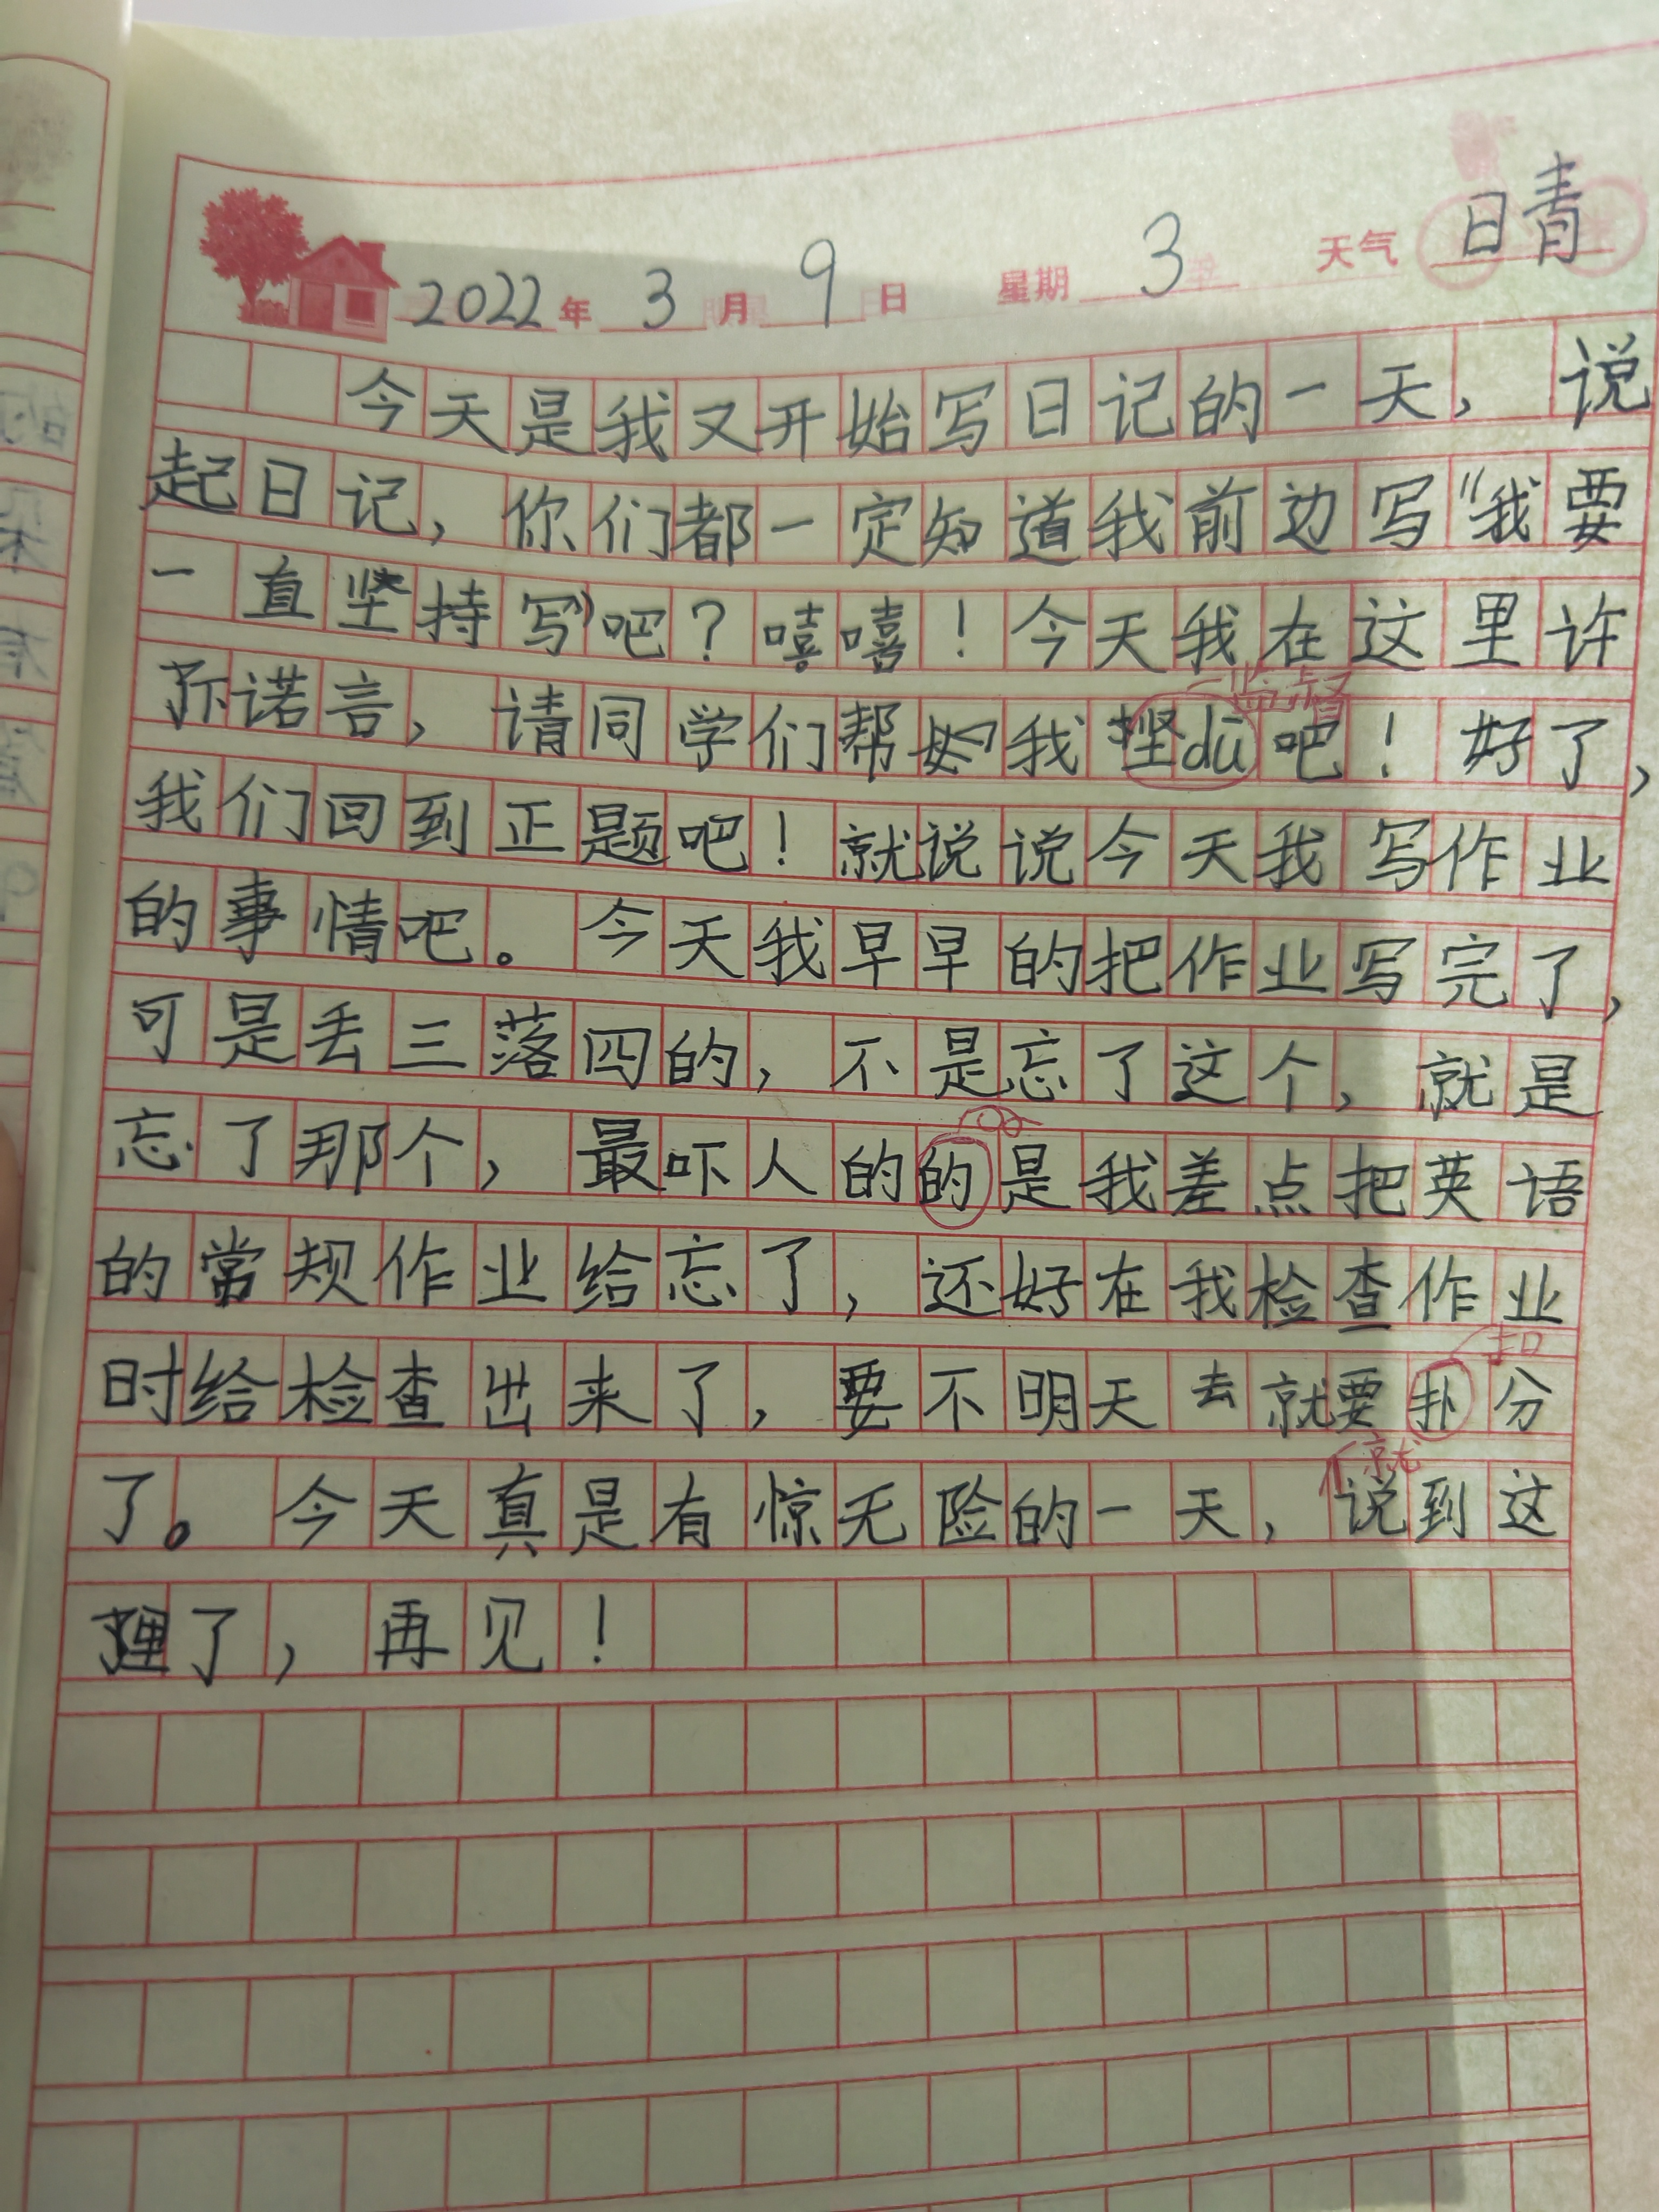 2022年3月9日 星期3 天气 晴
今天是我又开始写日记的一天，说
起日记，你们都一定知道我前边写“我要
一直坚持写”吧？嘻嘻！今天我在这里许
下诺言，请同学们帮我坚dū吧！好了，
监督
我们回到正题吧！就说说今天我写作业
的事情吧。今天我早早的把作业写完了，
可是丢三落四的，不是忘了这个，就是
忘了那个，最吓人的的是我差点把英语
的常规作业给忘了，还好在我检查作业
时给检查出来了，要不明天去就要扑分
扣
了。今天真是有惊无险的一天，说到这
就
里了，再见！